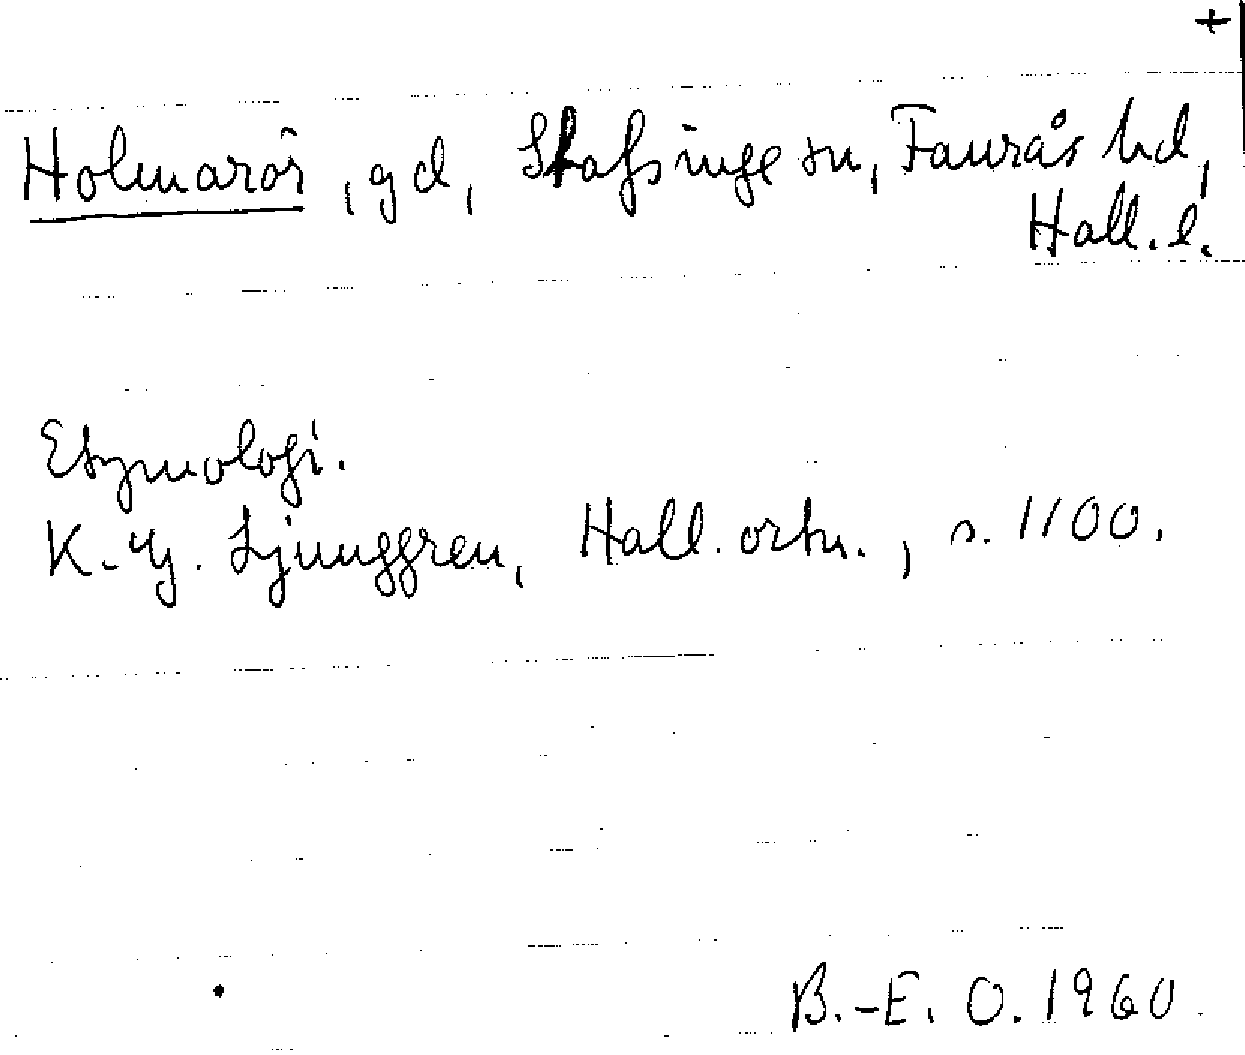 +
Holmarör, gd, Stafsinge sn, Faurås hd,
Hall. l.
Etymologi.
K. G. Ljunggren, Hall. ortn., s. 1100.
B.-E. O. 1960